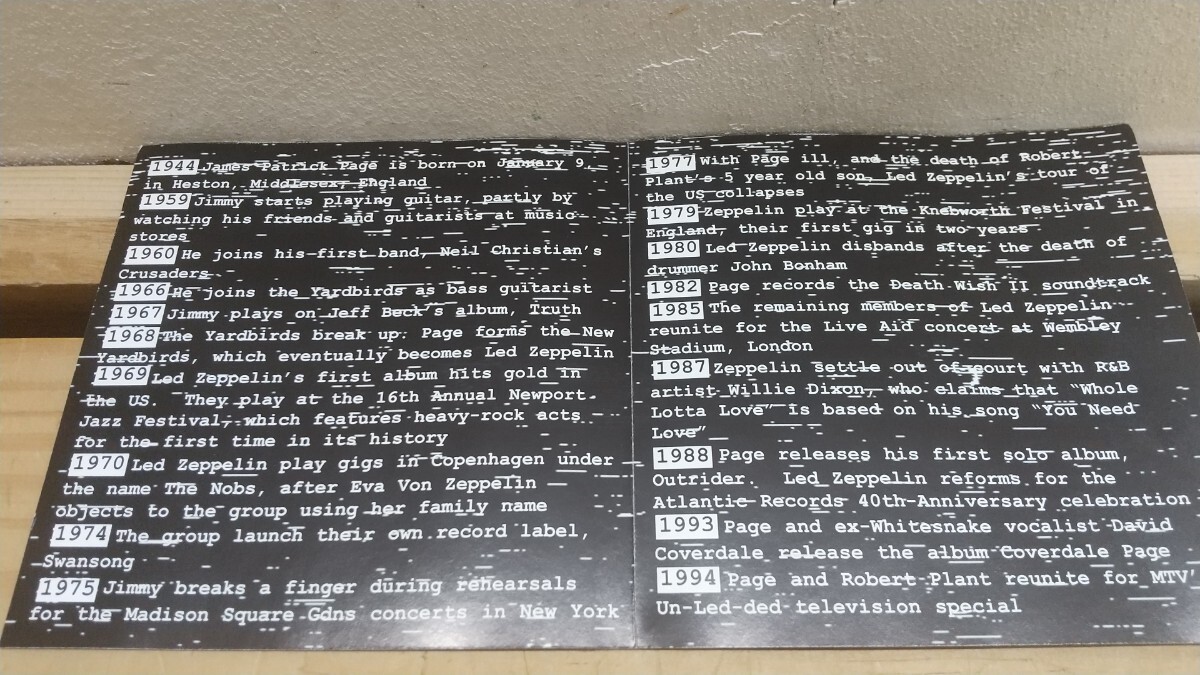 1944 James Patrick Page is born on January 9,
in Heston, Middlesex, England
1959 Jimmy starts playing guitar, partly by
watching his friends and guitarists at music
stores
1960 He joins his first band, Neil Christian's
Crusaders
1966 He joins the Yardbirds as bass guitarist
1967 Jimmy plays on Jeff Beck's album, Truth
1968 The Yardbirds break up. Page forms the New
Yardbirds, which eventually becomes Led Zeppelin
1969 Led Zeppelin's first album hits gold in
the US. They play at the 16th Annual Newport
Jazz Festival, which features heavy-rock acts
for the first time in its history
1970 Led Zeppelin play gigs in Copenhagen under
the name The Nobs, after Eva Von Zeppelin
objects to the group using her family name
1974 The group launch their own record label,
Swansong
1975 Jimmy breaks a finger during rehearsals
for the Madison Square Gdns concerts in New York
1977 With Page ill, and the death of Robert
Plant's 5 year old son, Led Zeppelin's tour of
the US collapses
1979 Zeppelin play at the Knebworth Festival in
England, their first gig in two years
1980 Led Zeppelin disbands after the death of
drummer John Bonham
1982 Page records the Death Wish II soundtrack
1985 The remaining members of Led Zeppelin
reunite for the Live Aid concert at Wembley
Stadium, London
1987 Zeppelin settle out of court with R&B
artist Willie Dixon, who claims that "Whole
Lotta Love" is based on his song "You Need
Love"
1988 Page releases his first solo album,
Outrider. Led Zeppelin reforms for the
Atlantic Records 40th Anniversary celebration
1993 Page and ex-Whitesnake vocalist David
Coverdale release the album Coverdale Page
1994 Page and Robert Plant reunite for MTV'
Un-Led-ded television special